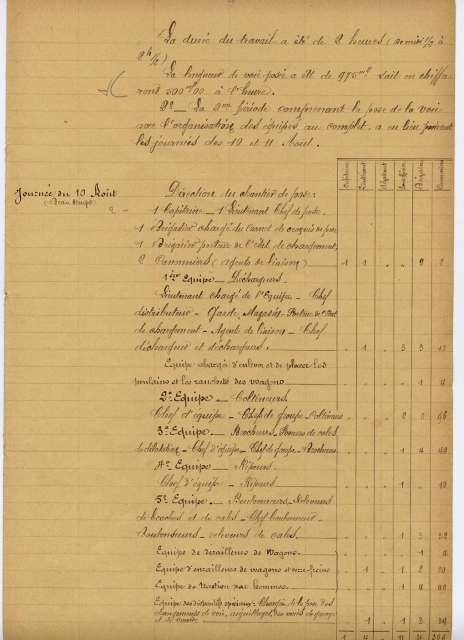 La durée du travail a été de 2 heures (de midi 1/2 à
2h 1/2)
La longueur de voie posée a été de 975 ml soit en chiffre
rond 500 ml 00 à l'heure.
2º - La 2me période comprenant la pose de la voie
avec l'organisation des équipes au complet, a eu lieu pendant
les journées des 10 et 11 Août.
Capitaine Lieutenant Adjudant Brigadiers Canonniers
Journée du 10 Août
(Beau temps)
Direction du chantier de pose:
1 Capitaine - 1 Lieutenant Chef de pose.
1 Brigadier chargé du Carnet de croquis de pose
1 Brigadier porteur de l'état de chargement.
2 Canonniers (agents de liaison) 1 1 " " 2 2
1ère Equipe - Déchargeurs.
Lieutenant chargé de l'Equipe - Chef
distributeur - Garde Magasin - Porteur de l'Etat
de chargement - Agents de liaison - Chef
déchargeur et déchargeurs. " 1 " 3 3
Equipe chargée d'enlever et de placer les
poulains et les ranchets des wagons " " " " 1
2e Equipe - Coltineurs
Chef d'équipe - Chefs de groupe - Coltineurs " " " 2 96
3e Equipe - Brocheurs, Poseurs de cales
de dilatation - Chef d'équipe - Chefs de groupe - Brocheurs " " " 1 4
4e Equipe - Ripeurs
Chef d'équipe - Ripeurs " " " 1 "
5e Equipe - Boutonneurs, Releveurs
de broches et de cales - Chef boutonneur -
Boutonneurs - releveurs de cales. " " " 1 3 32
Equipe de dérailleurs de Wagons. " " " " 1
Equipe d'enrailleurs de wagons et serre-freins " 1 " 1 2 20
Equipe de traction par hommes. " " " 1 4
Equipe des dispositifs spéciaux - Chargée de la pose des
changements de voie, aiguillages, des voies de garage
" 1 " 1 3